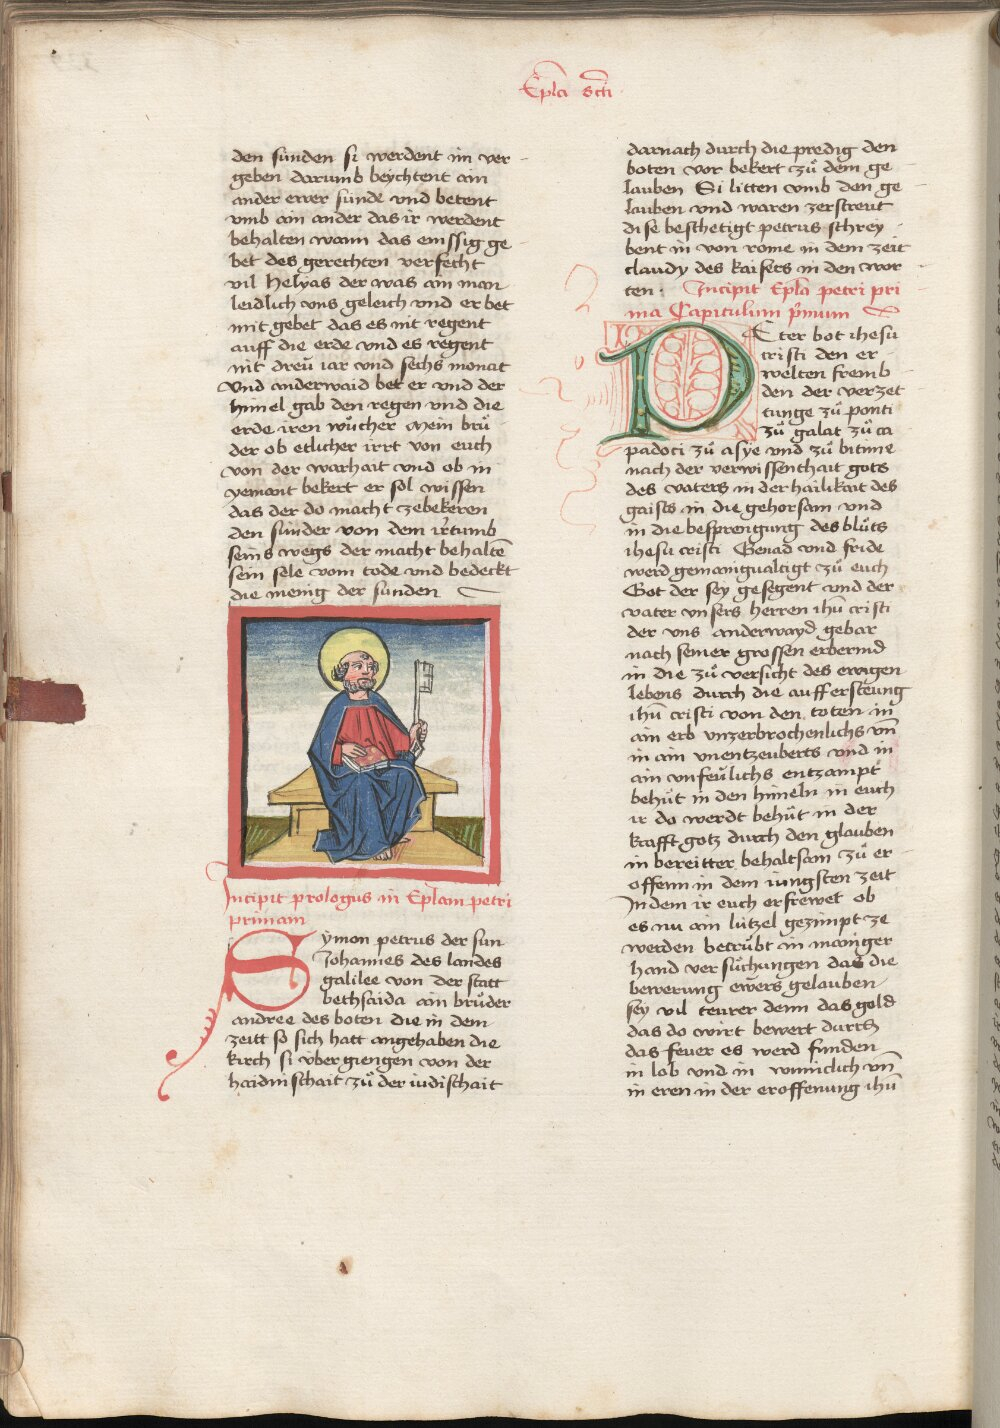 Epla scti
den sunden si werdent im ver
geben darumb beychtent ain
ander ewer sunde vnd betent
vmb ain ander das ir werdent
behalten wann das emssig ge
bet des gerechten verfecht
vil Helyas der was ain man
leidlich vns geleich vnd er bet
mit gebet das es nit regent
auff die erde vnd es regent
nit dreü iar vnd sechs monat
Vnd anderwaid bet er vnd der
himel gab den regen vnd die
erde iren wůcher Mein brů
der ob etlicher irrt von euch
von der warhait vnd ob in
yemant bekert er sol wissen
das der do macht zebekeren
den sünder von dem irrtumb
seins wegs der macht behaltē
sein sele vom tode vnd bedeckt
die menig der sunden
Incipit prologus in Eplam petri
primam
Sÿmon petrus der sun
Johannes des landes
galilee von der statt
bethsaida ain brůder
andree des boten die in dem
zeitt so sich hatt angehaben die
kirch si vber giengen von der
haidnischait zů der iudischait
darnach durch die predig den
boten vor bekert zů dem ge
lauben Si litten vmb den ge
lauben vnd waren zerstreut
dise besthetigt petrus schrey
bent in von rome in dem zeit
claudy des kaisers in den wor
ten · Incipit Epla petri pri
ma Capitulum pͥmum
PEter bot ihesu
cristi den er
welten fremb
den der verzet
tunge zů ponti
zů galat zů ca
padoci zů asye vnd zů bitinie
nach der verwissenthait gots
des vaters in der hailikait des
gaists in die gehorsam vnd
in die besprengung des blůts
ihesu cristi Genad vnd fride
werd gemanigualtigt zů euch
Got der sey gesegent vnd der
vater vnsers herren ihū cristi
der vns anderwayd gebar
nach seiner grossen erbermd
in die zů versicht des ewigen
lebens durch die auffersteung
ihū cristi von den toten in
ain erb vnzerbrochenlichs vn̄
in ain vnentzeuberts vnd in
ain vnfeülichs entzampt
behüt in den himeln in euch
ir do werdt behüt in der
krafft gotz durch den glauben
in bereitter behaltsam zů er
offenn in dem iungsten zeit
In dem ir euch erfrewet ob
es nu ain lützel gezimpt ze
werden betrübt in maniger
hand versůchungen das die
bewerung ewers gelauben
sey vil teurer denn das gold
das do wirt bewert durch
das feuer es werd funden
in lob vnd in wunniclich vn̄
in eren in der eroffenung ihū